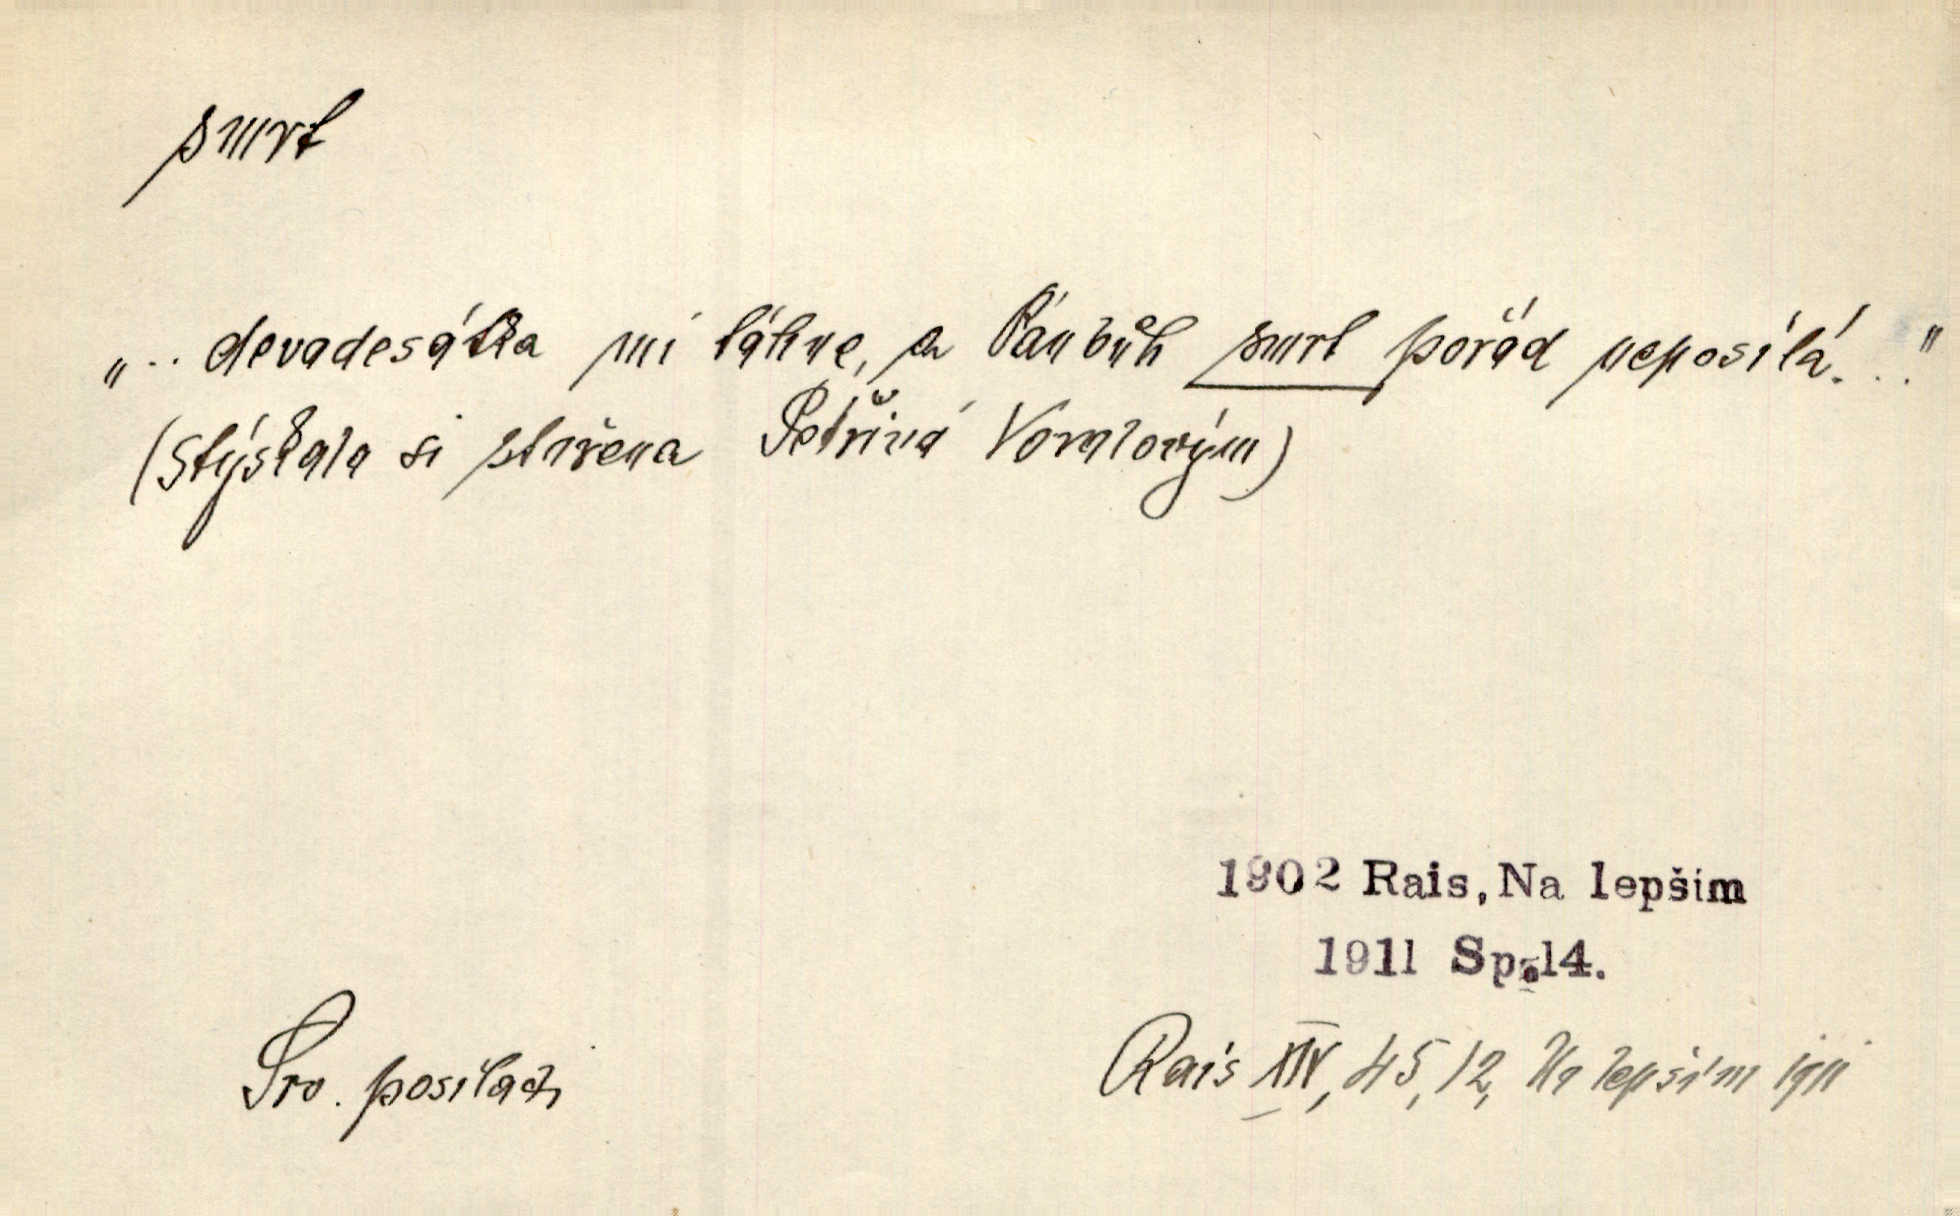 smrt
„.. devadesátka mi táhne, a Pánbůh smrt pořád neposílá. . ."
(stýskala si stařena Petřina Voralovým)
1902 Rais, Na lepším
1911 Sp. 14.
Sro. posílati
Rais XIV, 45, 12, Na lepším 1911